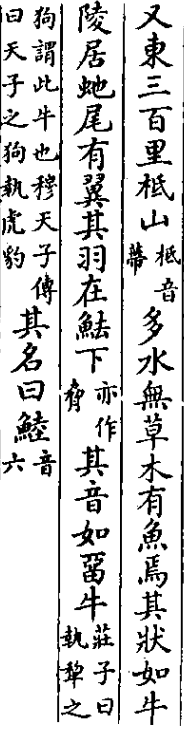 又東三百里柢山柢音蔕多水無草木有魚焉其狀如牛
陵居虵尾有翼其羽在魼下亦作脅其音如畱牛莊子曰執犂之
狗謂此牛也穆天子傳曰天子之狗執虎豹其名曰鯥音六